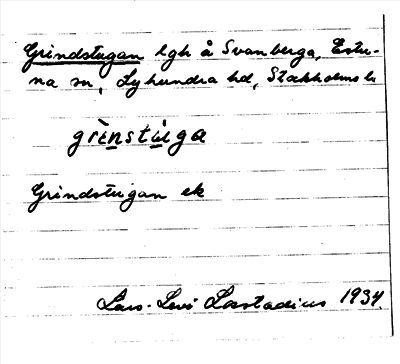 Grindstugan lgh å Svanberga, Estu-
na sn, Lyhundra hd, Stockholms l.
grìnstùga
Grindstugan ek
Lars-Levi Læstadius 1934.